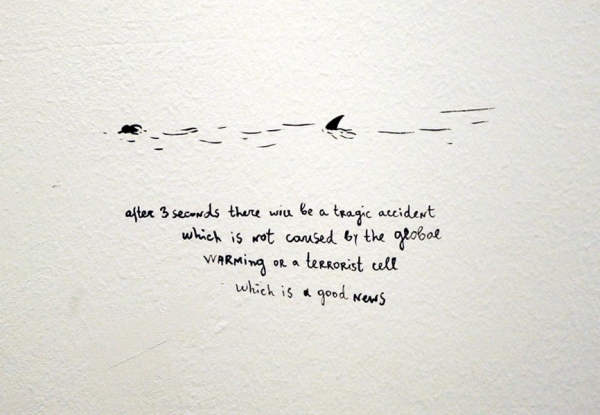 after 3 seconds there will be a tragic accident
which is not caused by the global
WARMing OR a TERRORIST cell
which is a good NEWS